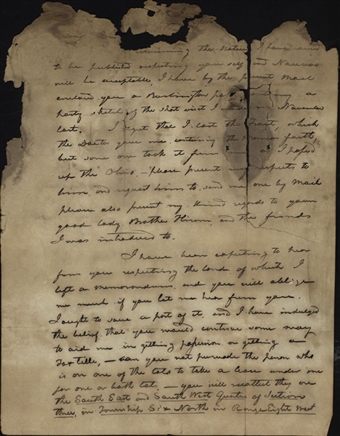 the Nature I have
to be published respecting your self and Nauvoo
will be acceptable, I have by the present Mail
enclosed you a Burlington a
hasty sketch of the visit I Nauvoo
last, I regret that I lost the Tract, which
the Docts gave me, containing the faith,
but some one took it from as I passed
up the Ohio, — please present my respects to
him and request him to send me one by Mail
please also present my kind regards to your
good lady Brother Hiram and the friends
I was introduced to.
I have been expecting to hear
from you respecting the lands of which I
left a Memorandum, and you will oblige
me much if you let me hear from you.
I ought to save a part of it, and I have indulged
the belief that you would contrive some way
to aid me in getting possession or getting a
fair title, — can you not persuade the person who
is on one of the lots to take a lease under one
for one or both lots, — you will recollect they are
the South East and South West Quarter of Section
three, in Township Six North in Range Eight West